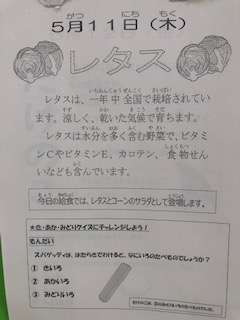 5月11日(木)
レタス
レタスは、一年中全国で栽培されてい
ます。涼しく、乾いた気候で育ちます。
レタスは水分を多く含む野菜で、ビタミ
ンCやビタミンE、カロテン、食物せん
いなども含んでいます。
今日の給食では、レタスとコーンのサラダとして登場します。
もんだい
スパゲッティは、はたらきでわけると、なにいろのたべものでしょうか?
① きいろ
② あかいろ
③ みどりいろ